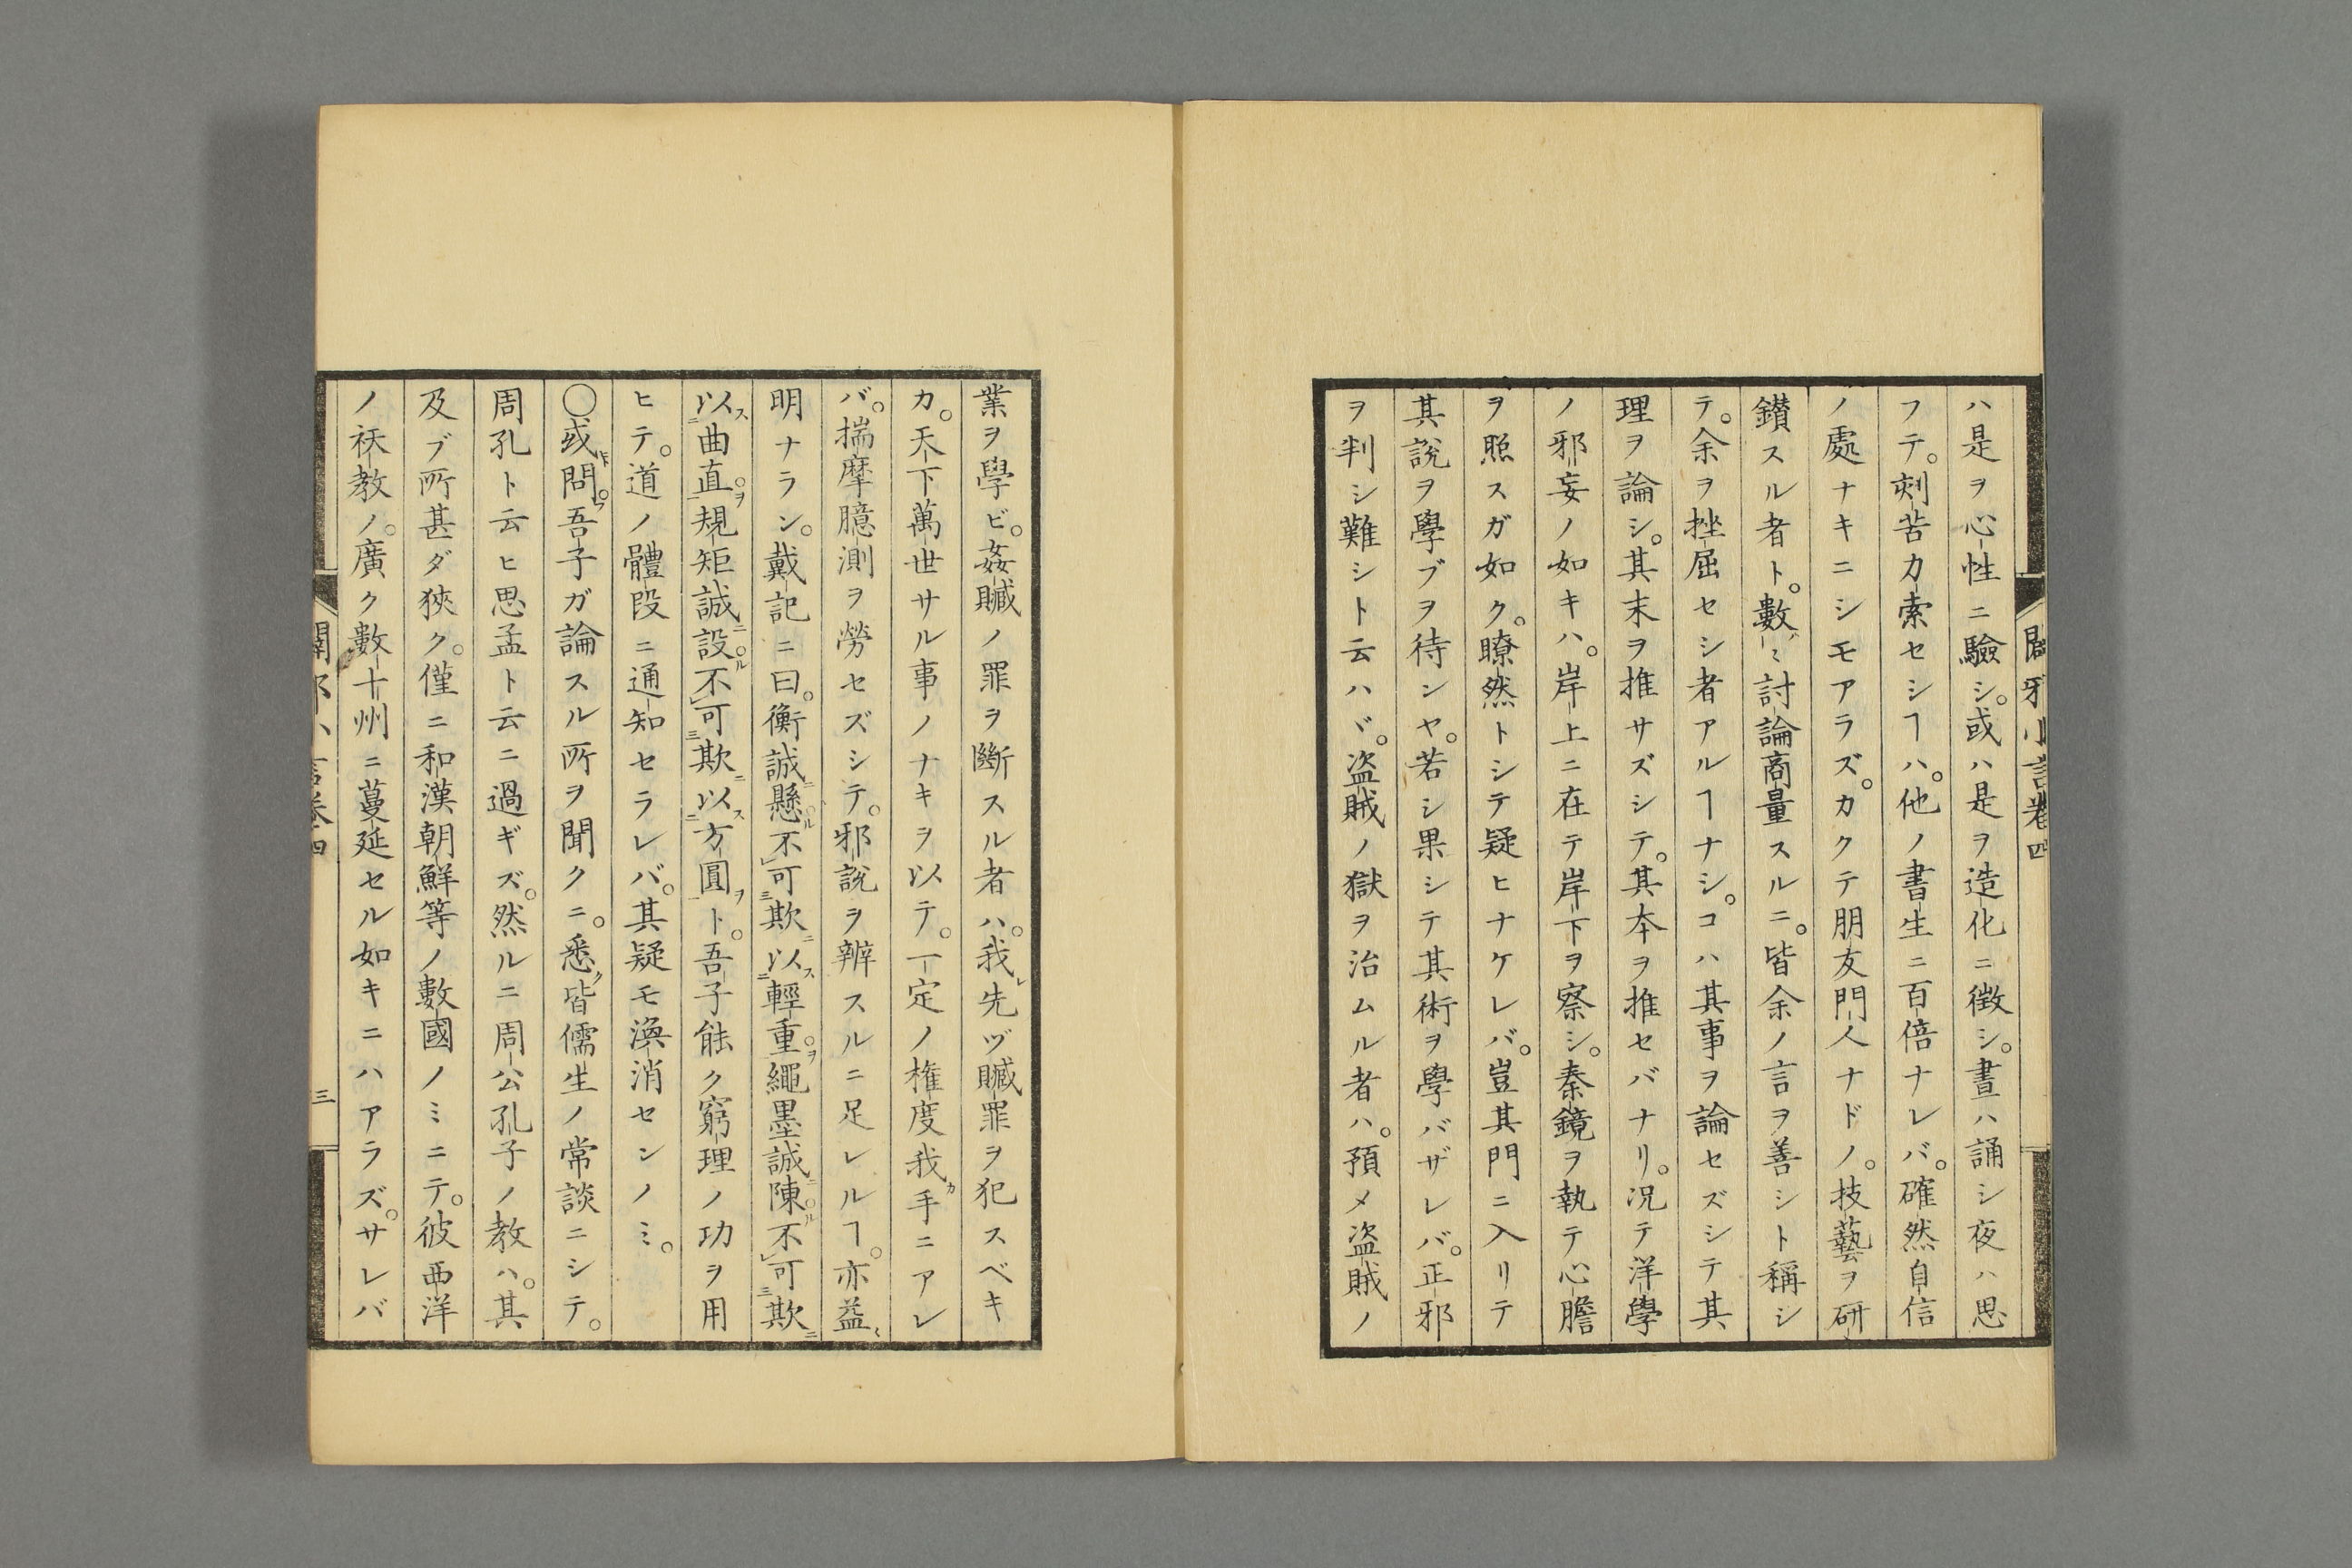 闢邪小言卷四
ハ是ヲ心性ニ驗シ。或ハ是ヲ造化ニ徴シ。晝ハ誦シ夜ハ思
フテ。刻苦力索セシヿハ。他ノ書生ニ百倍ナレバ。確然自信
ノ處ナキニシモアラズ。カクテ朋友門人ナドノ。技藝ヲ研
鑽スル者ト。數〻討論商量スルニ。皆余ノ言ヲ善シト稱シ
テ。余ヲ挫屈セシ者アルヿナシ。コハ其事ヲ論セズシテ其
理ヲ論シ。其末ヲ推サズシテ。其本ヲ推セバナリ。况テ洋學
ノ邪妄ノ如キハ。岸上ニ在テ岸下ヲ察シ。秦鏡ヲ執テ心膽
ヲ照スガ如ク。瞭然トシテ疑ヒナケレバ。豈其門ニ入リテ
其說ヲ學ブヲ待ンヤ。若シ果シテ其術ヲ學バザレバ。正邪
ヲ判シ難シト云ハヾ。盜賊ノ獄ヲ治ムル者ハ。預メ盜賊ノ
業ヲ學ビ。姦贓ノ罪ヲ斷スル者ハ。我レ先ヅ贓罪ヲ犯スベキ
カ。天下萬世サル事ノナキヲ以テ。一定ノ權度我カ手ニアレ
バ。揣摩臆測ヲ勞セズシテ。邪說ヲ辨スルニ足レルヿ。亦益〻
明ナラン。戴記ニ曰。衡誠ニ懸ル不可欺以輕重ヲ繩墨誠ニ陳ル不可欺
以曲直ヲ規矩誠ニ設ル不可欺以方圓ヲト。吾子能ク窮理ノ功ヲ用
ヒテ。道ノ體段ニ通知セラレバ。其疑モ渙消センノミ。
○或問。吾子ガ論スル所ヲ聞クニ。悉ク皆儒生ノ常談ニシテ。
周孔ト云ヒ思孟ト云ニ過ギズ。然ルニ周公孔子ノ教ハ。其
及ブ所甚ダ狹ク。僅ニ和漢朝鮮等ノ數國ノミニテ。彼西洋
ノ祅教ノ。廣ク數十州ニ蔓延セル如キニハアラズ。サレバ
闢邪小言卷四
三